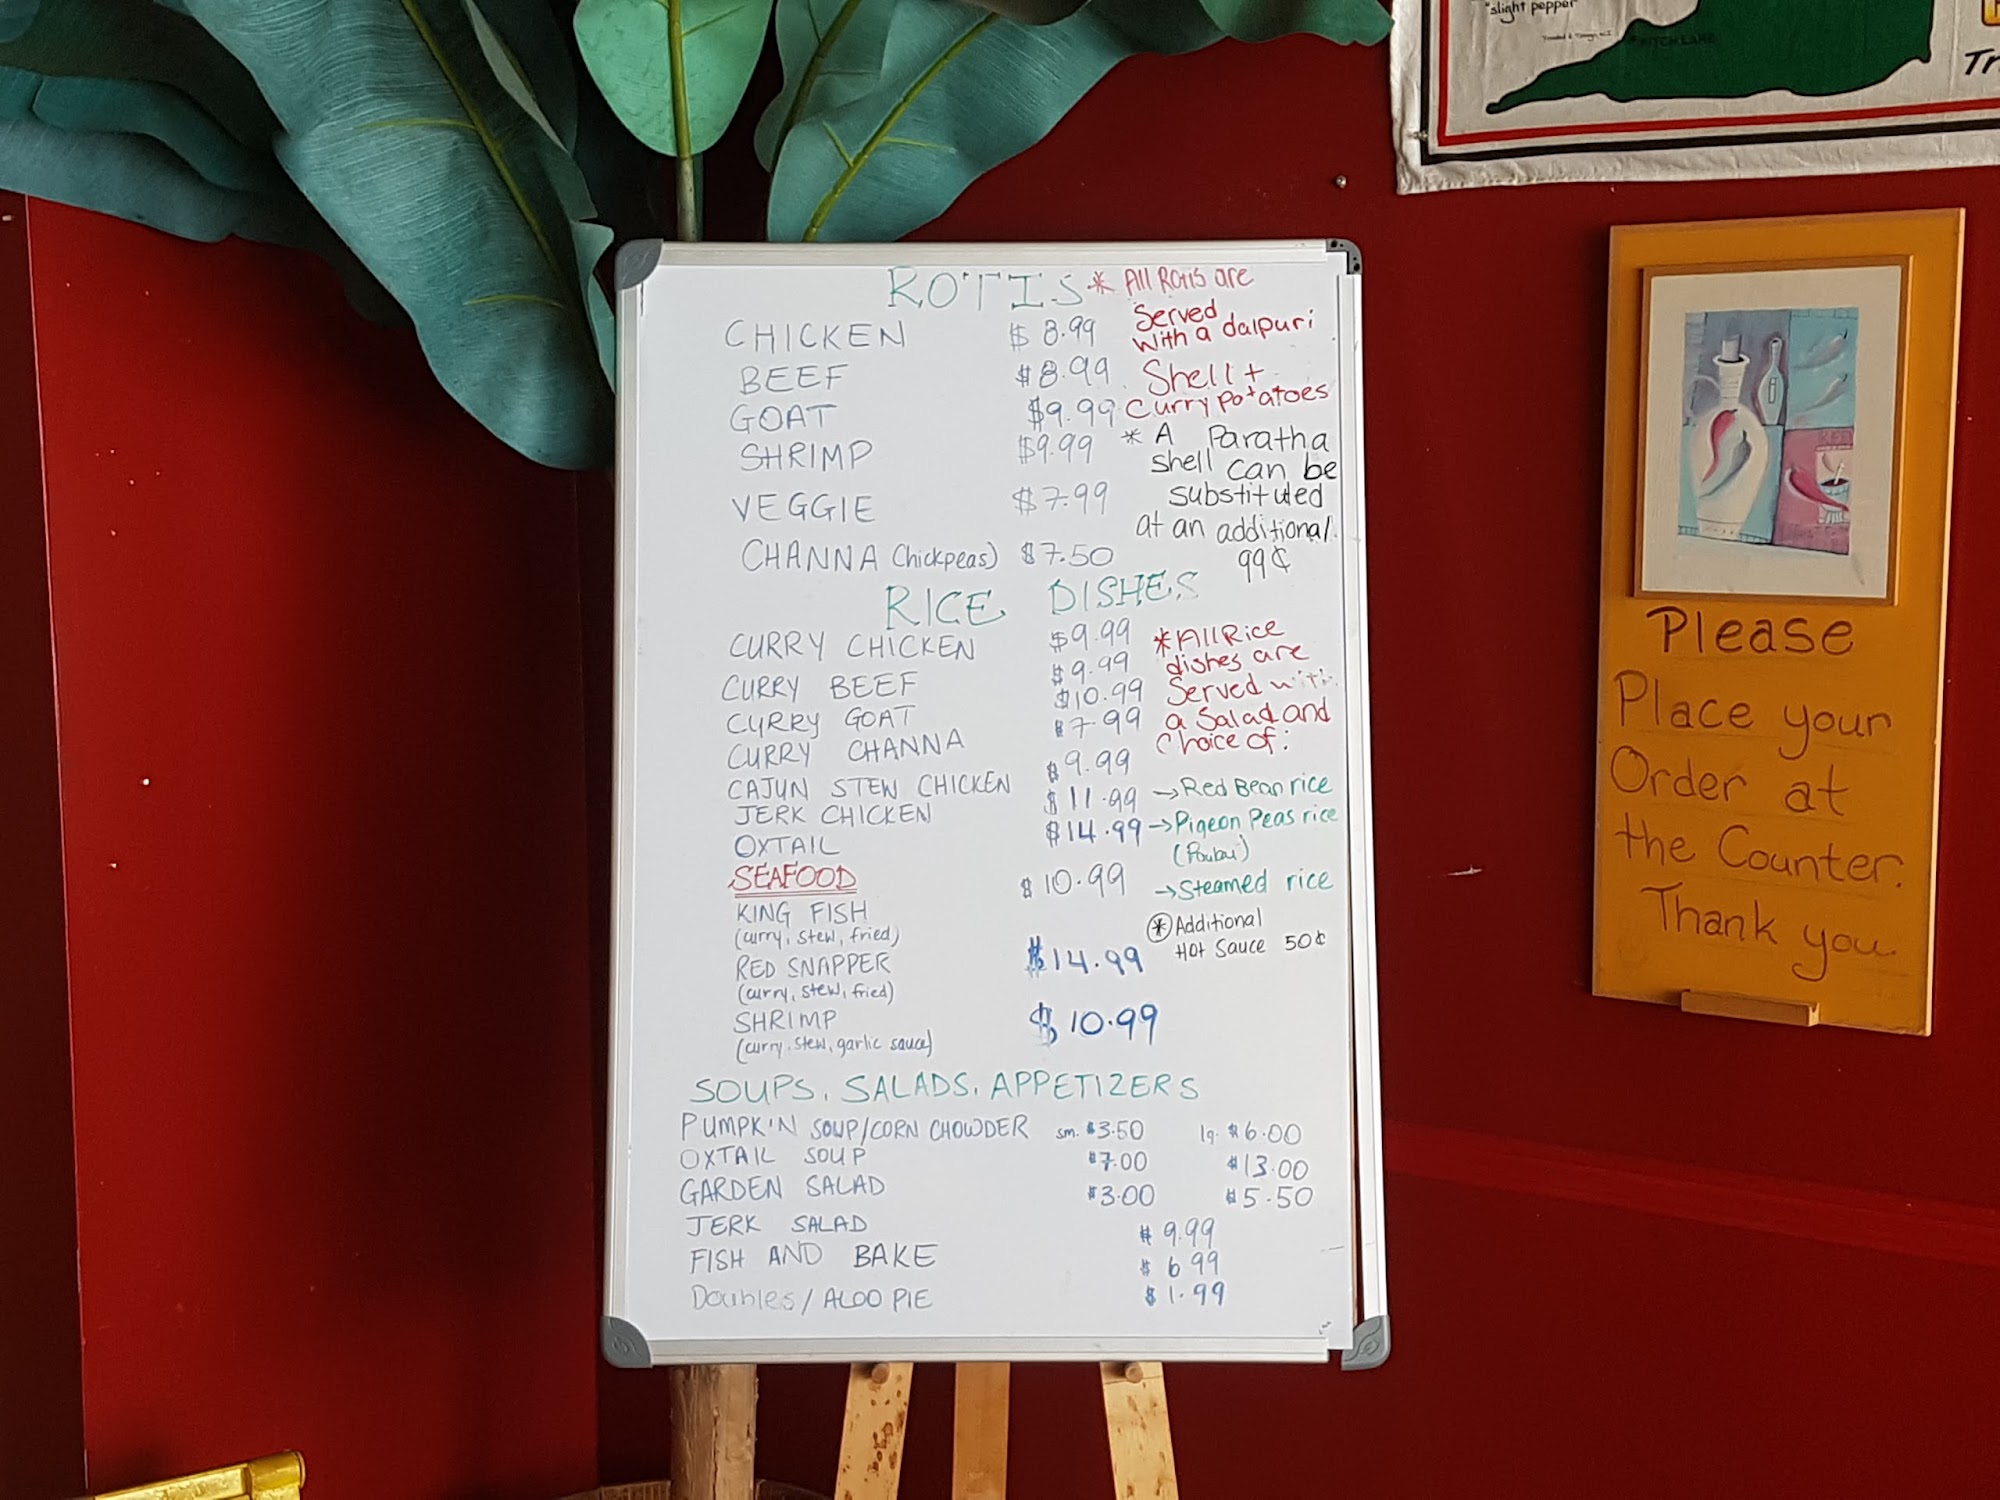 "slight pepper"
Trinidad & Tobago, W.I.
PITCH LAKE
ROTIS * All Rotis are
Served
with a dalpuri
Shell +
Curry potatoes
CHICKEN $ 8.99
BEEF $8.99
GOAT $9.99
SHRIMP $9.99
VEGGIE $7.99
CHANNA (Chickpeas) $7.50
* A Paratha
shell can be
substituted
at an additional
99¢
RICE DISHES
CURRY CHICKEN $9.99
CURRY BEEF $9.99
CURRY GOAT $10.99
CURRY CHANNA $7.99
CAJUN STEW CHICKEN $9.99
JERK CHICKEN $11.99
OXTAIL $14.99
* All Rice
dishes are
Served with
a Salad and
Choice of:
→Red Bean rice
→Pigeon Peas rice
→Steamed rice
SEAFOOD
KING FISH $10.99
(curry, stew, fried)
RED SNAPPER $14.99
(curry, stew, fried)
SHRIMP $10.99
(curry, stew, garlic sauce)
* Additional
Hot Sauce 50¢
SOUPS, SALADS, APPETIZERS
PUMPKIN SOUP/CORN CHOWDER sm. $3.50 lg. $6.00
OXTAIL SOUP $7.00 $13.00
GARDEN SALAD $3.00 $5.50
JERK SALAD $9.99
FISH AND BAKE $6.99
Doubles/ALOO PIE $1.99
Please
Place your
Order at
the Counter.
Thank you.